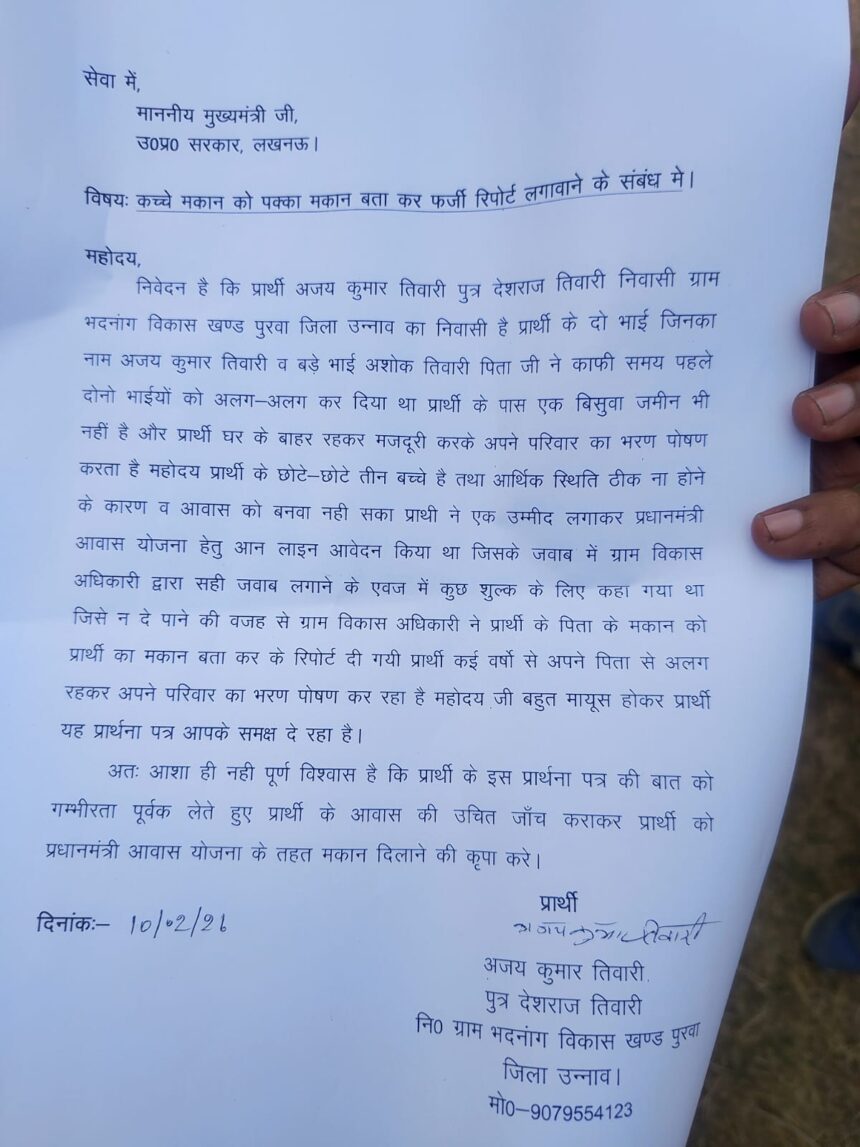 सेवा में,
माननीय मुख्यमंत्री जी,
उ0प्र0 सरकार, लखनऊ।
विषयः कच्चे मकान को पक्का मकान बता कर फर्जी रिपोर्ट लगावाने के संबंध मे।
महोदय,
निवेदन है कि प्रार्थी अजय कुमार तिवारी पुत्र देशराज तिवारी निवासी ग्राम
भदनांग विकास खण्ड पुरवा जिला उन्नाव का निवासी है प्रार्थी के दो भाई जिनका
नाम अजय कुमार तिवारी व बड़े भाई अशोक तिवारी पिता जी ने काफी समय पहले
दोनो भाईयों को अलग–अलग कर दिया था प्रार्थी के पास एक बिसुवा जमीन भी
नहीं है और प्रार्थी घर के बाहर रहकर मजदूरी करके अपने परिवार का भरण पोषण
करता है महोदय प्रार्थी के छोटे–छोटे तीन बच्चे है तथा आर्थिक स्थिति ठीक ना होने
के कारण व आवास को बनवा नही सका प्राथी ने एक उम्मीद लगाकर प्रधानमंत्री
आवास योजना हेतु आन लाइन आवेदन किया था जिसके जवाब में ग्राम विकास
अधिकारी द्वारा सही जवाब लगाने के एवज में कुछ शुल्क के लिए कहा गया था
जिसे न दे पाने की वजह से ग्राम विकास अधिकारी ने प्रार्थी के पिता के मकान को
प्रार्थी का मकान बता कर के रिपोर्ट दी गयी प्रार्थी कई वर्षो से अपने पिता से अलग
रहकर अपने परिवार का भरण पोषण कर रहा है महोदय जी बहुत मायूस होकर प्रार्थी
यह प्रार्थना पत्र आपके समक्ष दे रहा है।
अतः आशा ही नही पूर्ण विश्वास है कि प्रार्थी के इस प्रार्थना पत्र की बात को
गम्भीरता पूर्वक लेते हुए प्रार्थी के आवास की उचित जाँच कराकर प्रार्थी को
प्रधानमंत्री आवास योजना के तहत मकान दिलाने की कृपा करे।
प्रार्थी
दिनांकः– 10/02/26
अजय कुमार तिवारी
अजय कुमार तिवारी
पुत्र देशराज तिवारी
नि0 ग्राम भदनांग विकास खण्ड पुरवा
जिला उन्नाव।
मो0–9079554123